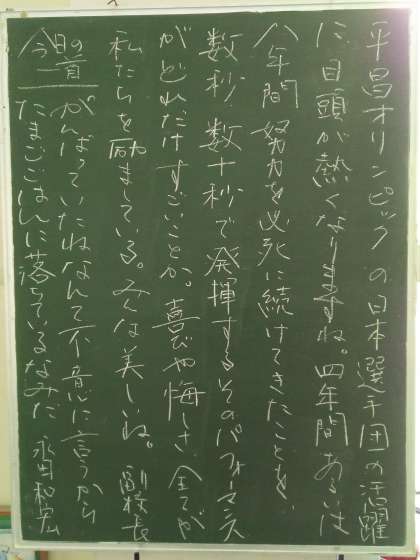 平昌オリンピックの日本選手団の活躍
に、目頭が熱くなりますね。四年間あるいは
八年間努力を必死に続けてきたことを、
数秒、数十秒で発揮するそのパフォーマンス
がどれだけすごいことか。喜びや悔しさ全てが
私たちを励ましている。みんな美しいね。 副校長
今日の一首
がんばっていたねなんて不意に言うから
たまごごはんに落ちているなみだ 永田和宏